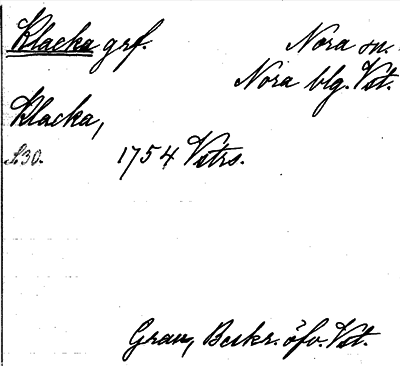 Klacka grf. Nora sn.
Nora blg. Vst.
Klacka,
s. 30. 1754 Vstrs.
Grau, Beskr. öfv. Vst.